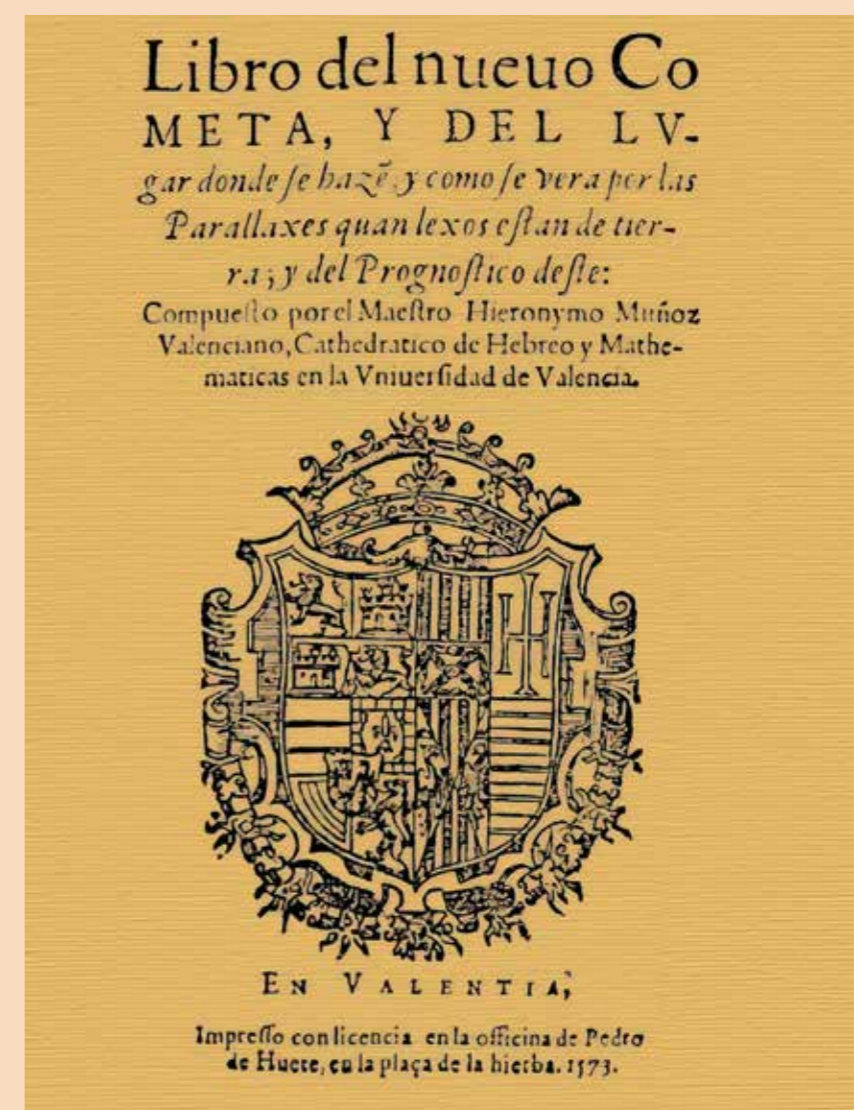 Libro del nueuo Co
META, Y DEL LV-
gar donde ſe hazẽ. y como ſe vera por las
Parallaxes quan lexos eſtan de tier-
ra; y del Prognoſtico deſte:
Compueſto por el Maeſtro Hieronymo Muñoz
Valenciano, Cathedratico de Hebreo y Mathe-
maticas en la Vniuerſidad de Valencia.
EN VALENTIA,
Impreſſo con licencia en la officina de Pedro
de Huete, en la plaça de la hierba. 1573.